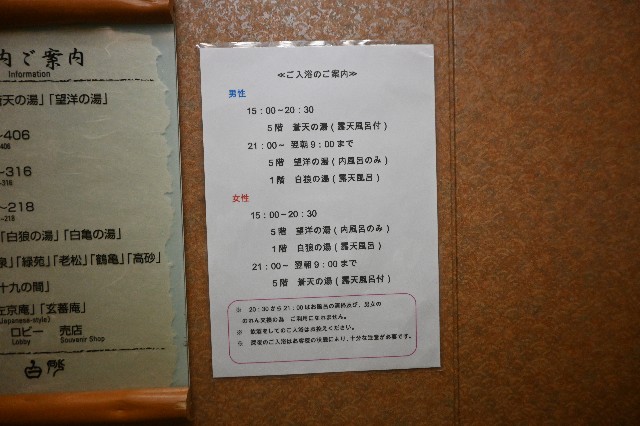 内ご案内
Information
蒼天の湯」「望洋の湯」
~406
~316
~218
「白狼の湯」「白亀の湯」
」「緑苑」「老松」「鶴亀」「高砂」
十九の間」
左京庵」「玄蕃庵」
(Japanese-style)
ロビー 売店
Lobby Souvenir Shop
≪ご入浴のご案内≫
男性
15:00~20:30
5階 蒼天の湯(露天風呂付)
21:00~ 翌朝9:00まで
5階 望洋の湯(内風呂のみ)
1階 白狼の湯(露天風呂)
女性
15:00~20:30
5階 望洋の湯(内風呂のみ)
1階 白狼の湯(露天風呂)
21:00~ 翌朝9:00まで
5階 蒼天の湯(露天風呂付)
※ 20:30から21:00はお風呂の清掃及び、男女の
のれん交換の為 ご利用になれません。
※ 飲酒をしてのご入浴はお控えください。
※ 深夜のご入浴はお客様の状態により、十分な注意が必要です。